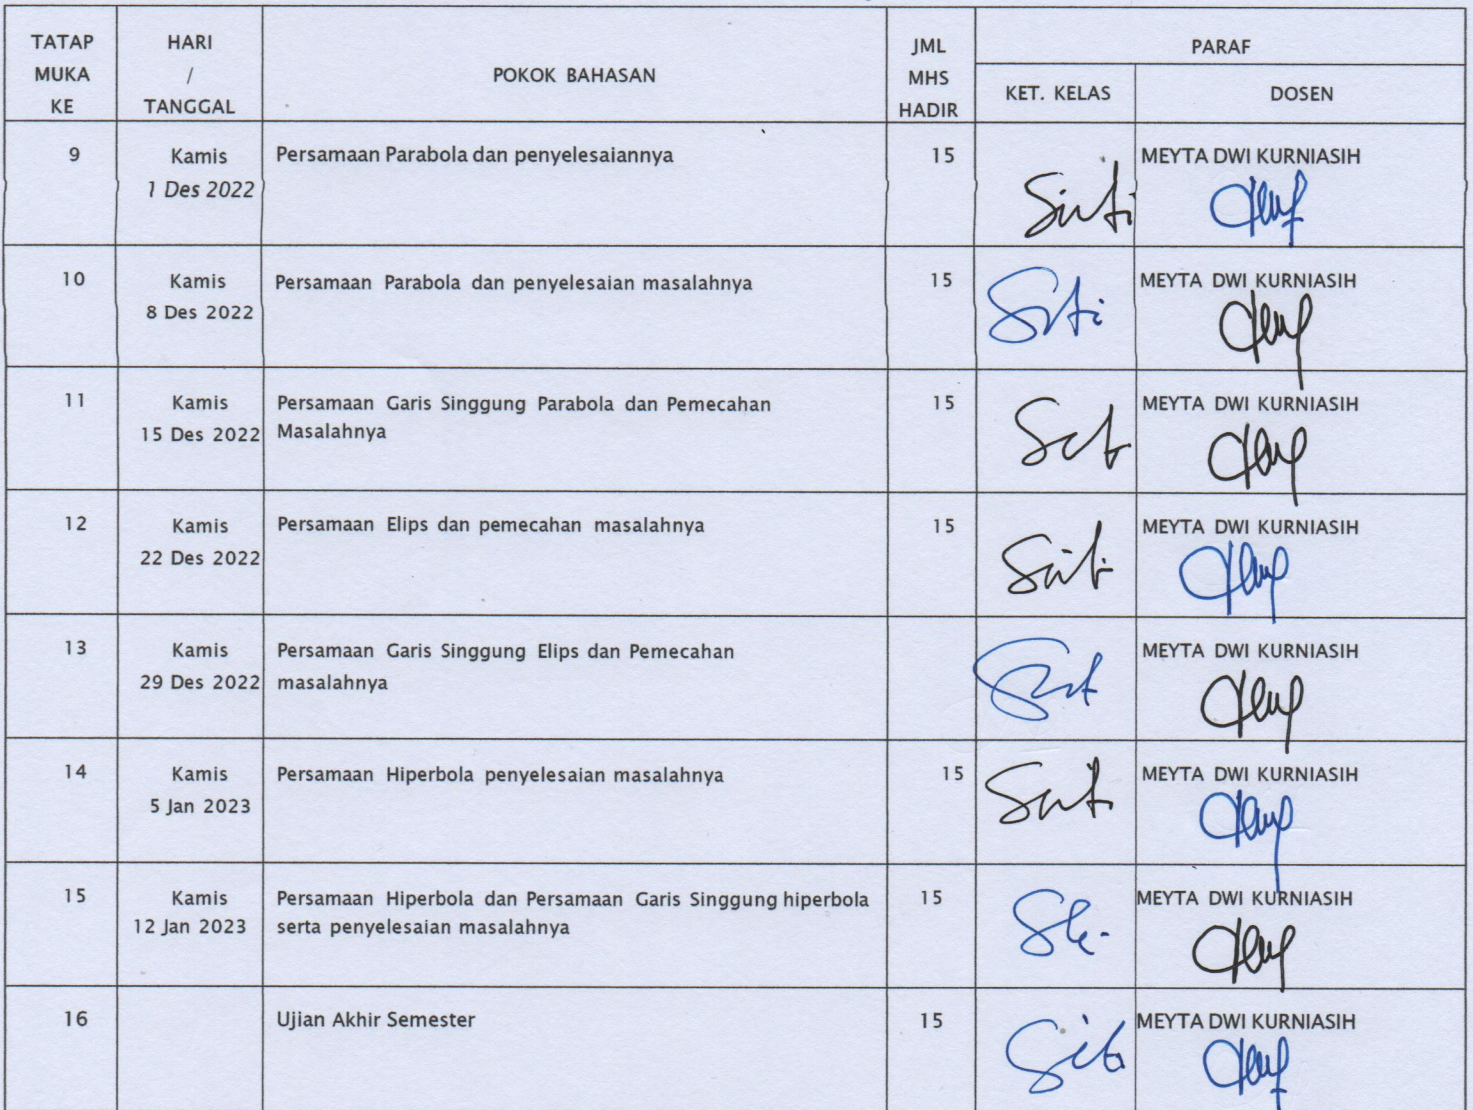 TATAP MUKA KE
HARI / TANGGAL
POKOK BAHASAN
JML MHS HADIR
PARAF
KET. KELAS
DOSEN
9
Kamis
1 Des 2022
Persamaan Parabola dan penyelesaiannya
15
Siti
MEYTA DWI KURNIASIH
10
Kamis
8 Des 2022
Persamaan Parabola dan penyelesaian masalahnya
15
Siti
MEYTA DWI KURNIASIH
11
Kamis
15 Des 2022
Persamaan Garis Singgung Parabola dan Pemecahan
Masalahnya
15
MEYTA DWI KURNIASIH
12
Kamis
22 Des 2022
Persamaan Elips dan pemecahan masalahnya
15
MEYTA DWI KURNIASIH
13
Kamis
29 Des 2022
Persamaan Garis Singgung Elips dan Pemecahan
masalahnya
MEYTA DWI KURNIASIH
14
Kamis
5 Jan 2023
Persamaan Hiperbola penyelesaian masalahnya
15
MEYTA DWI KURNIASIH
15
Kamis
12 Jan 2023
Persamaan Hiperbola dan Persamaan Garis Singgung hiperbola
serta penyelesaian masalahnya
15
MEYTA DWI KURNIASIH
16
Ujian Akhir Semester
15
MEYTA DWI KURNIASIH